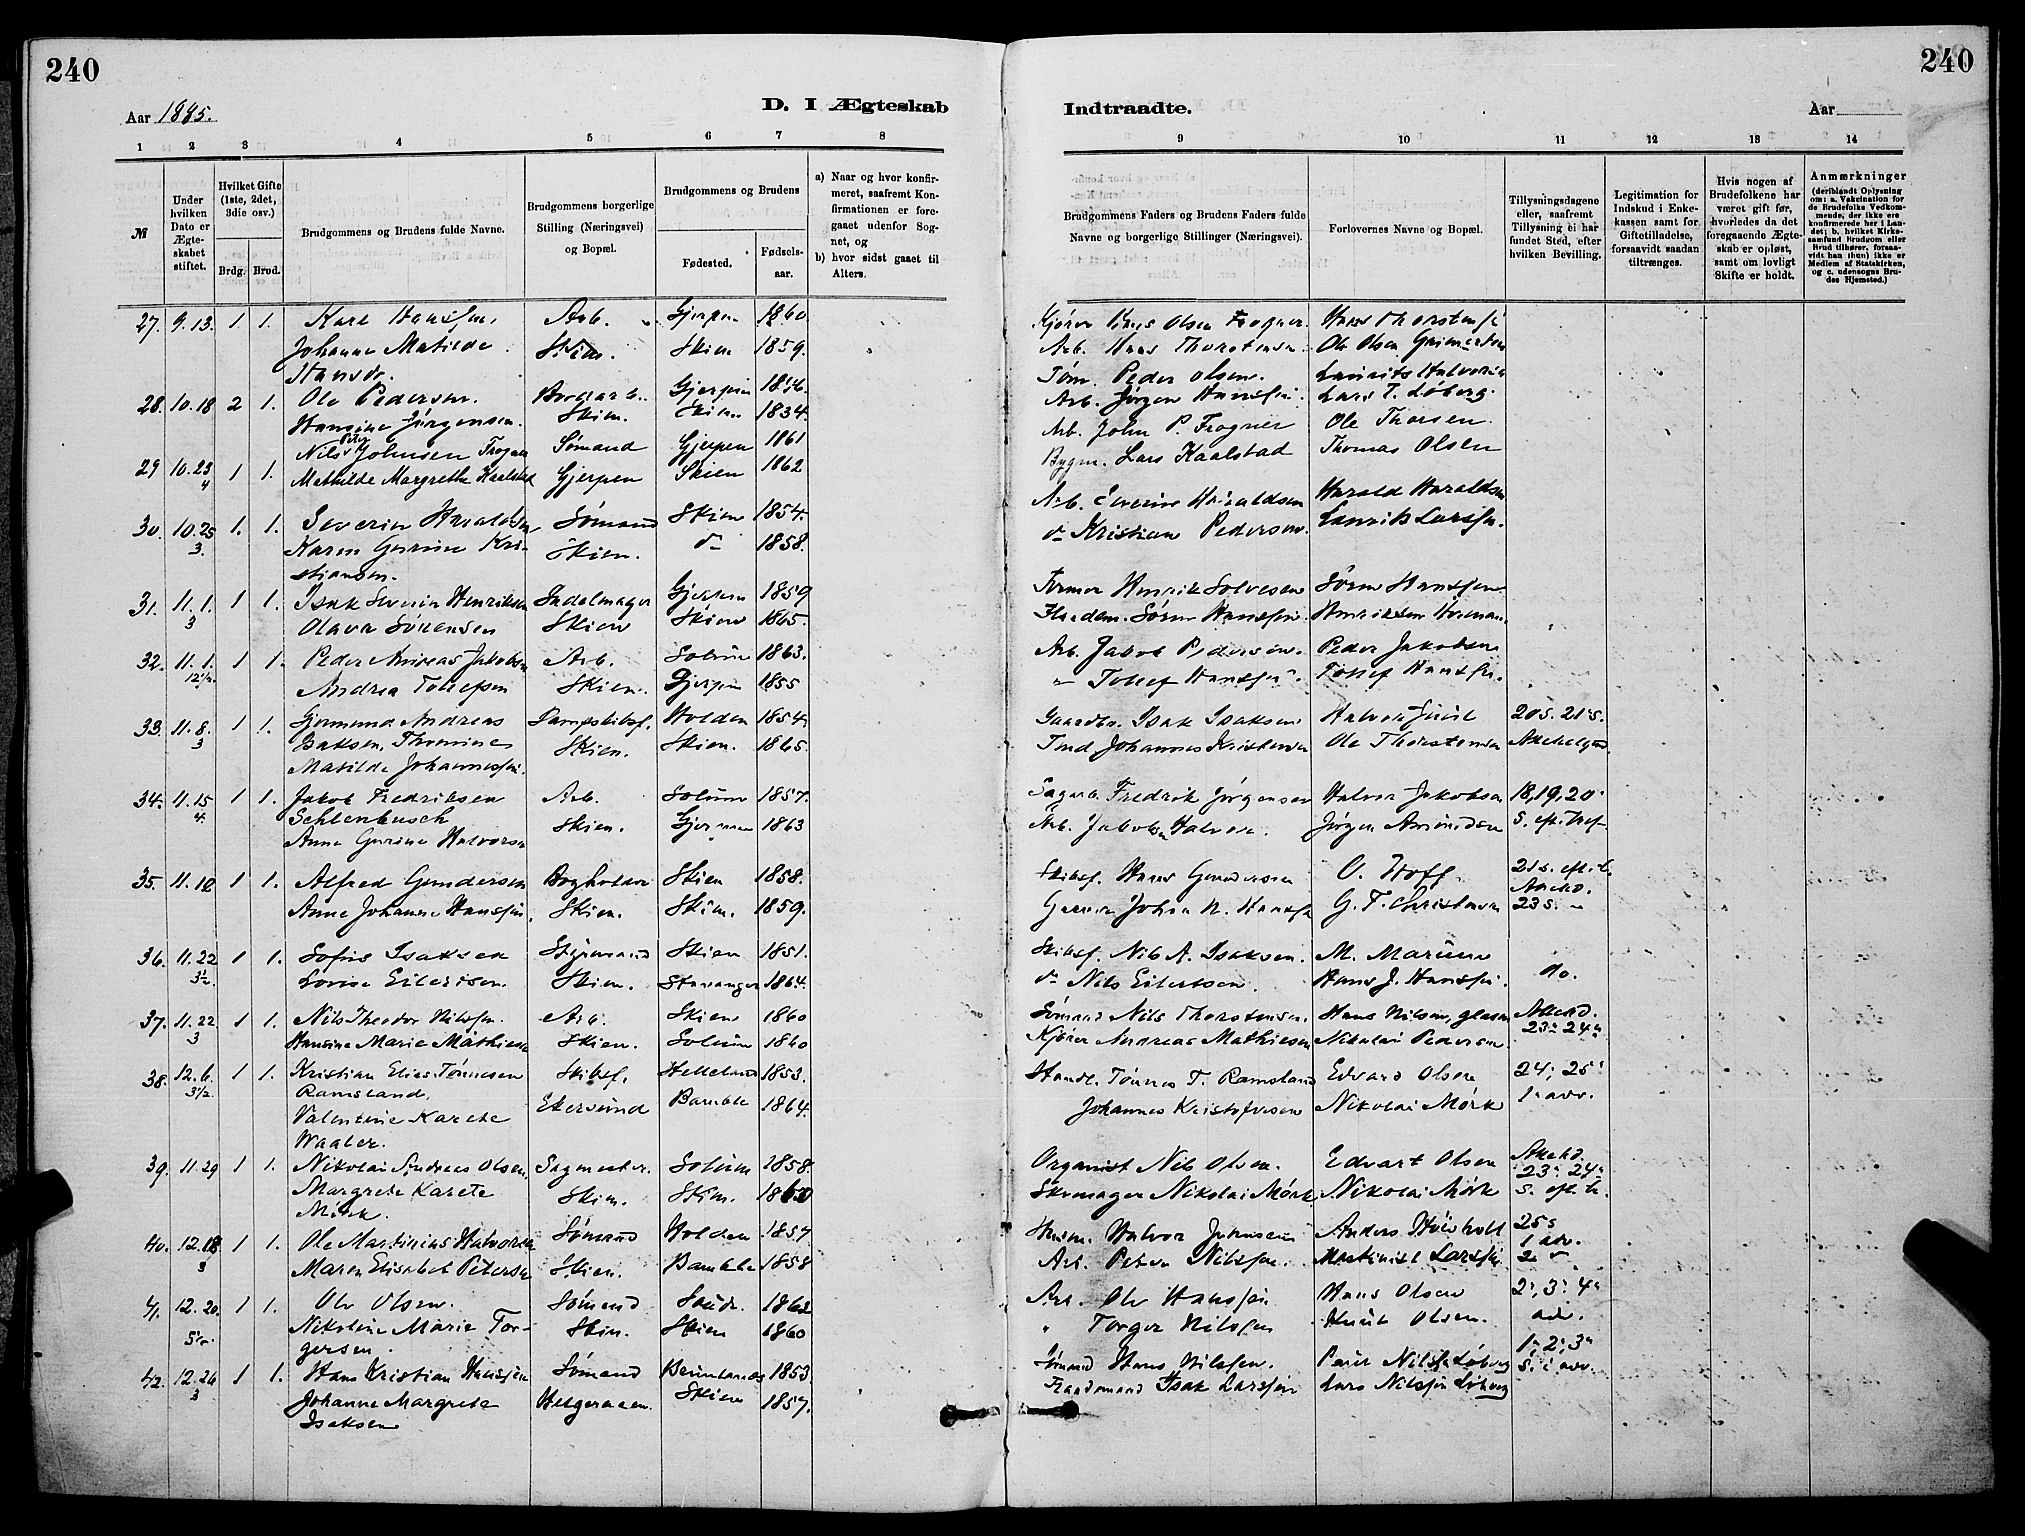 240
240
Aar 1885.
D. I Ægteskab
Indtraadte.
Aar
1 2 3 4 5 6 7 8
9 10 11 12 13 14
№
Under hvilken Dato er Ægteskabet stiftet.
Hvilket Gifte (1ste, 2det, 3die osv.)
Brdg. Brud.
Brudgommens og Brudens fulde Navne.
Brudgommens borgerlige Stilling (Næringsvei) og Bopæl.
Brudgommens og Brudens
Fødested.
Fødselsaar.
a) Naar og hvor konfirmeret, saafremt Konfirmationen er foregaaet udenfor Sognet, og
b) hvor sidst gaaet til Alters.
Brudgommens Faders og Brudens Faders fulde Navne og borgerlige Stillinger (Næringsvei).
Forlovernes Navne og Bopæl.
Tillysningsdagene eller, saafremt Tillysning ei har fundet Sted, efter hvilken Bevilling.
Legitimation for Indskud i Enkekassen samt for Giftetilladelse, forsaavidt saadan tiltrænges.
Hvis nogen af Brudefolkene har været gift før, hvorledes da det foregaaende Ægteskab er opløst, samt om lovligt Skifte er holdt.
Anmærkninger (deriblandt Oplysning om: a. Vakcination for de Brudefolks Vedkommende, der ikke ere konfirmerede her i Landet; b. hvilket Kirkesamfund Brudgom eller Brud tilhører, forsaavidt han (hun) ikke er Medlem af Statskirken, og c. udensogns Brudes Hjemsted.)
27. 9. 13. 1 1. Karl Hansen. Arb. Gjerpen 1860. Kjører Hans Olsen Frogner. Hans Thorstensen
Johanne Matilde Skien. Skien 1859. Arb. Hans Thorstensen. Ole Olsen
Hansdr.
28. 10. 18 2 1. Ole Pedersen. Gjerpen Tøm. Peder Olsen. Laurits Halvorsen
Hansine Jørgensen. Skien. Skien 1834. Arb. Jørgen Hansen. Lars T. Løberg.
29 10. 23 4 1 1. Nils Johnsen Frogner Sømand Gjerpen 1861 Arb. John P. Frogner Ole Thorsen.
Mathilde Margrethe Kaalstad Gjerpen Skien 1862 Bygm. Lars Kaalstad Thomas Olsen
30. 10. 25 3. 1. 1. Severin Haraldsen Sømand Skien 1854. Arb. Severin Haraldsen Harald Haraldsen
Karen Gurine Kri- Skien. do 1858. do Kristian Pedersen. Laurits Larsen.
stiansen.
31. 11. 1. 3 1 1. Isak Severin Henriksen Sadelmager Gjerpen 1859 Former Henrik Solvesen Søren Hansen
Olava Sørensen Skien Skien 1865. Søren Hansen. Henriksen
32. 11. 1. 12½. 1 1. Peder Andreas Jakobsen Arb. Solum 1863. Arb. Jakob Pedersen. Peder Jakobsen
Andrea Tollefsen Skien. Gjerpen 1855 " Tollef Hansen. Tollef Hansen.
33. 11. 8. 3 1 1. Gjermund Andreas Dampskibsf. Holden 1854. Gaardbr. Isak Isaksen Halvor Juul 20s. 21s.
Isaksen, Thomine Skien. Skien. 1865. Johannes Kristensen Ole Thorstensen
Matilde Johannessen.
34. 11. 15 4. 1 1. Jakob Fredriksen Arb. Solum 1857. Sagarb. Fredrik Jørgensen Halvor Jakobsen 18, 19, 20
Schlenbusch Skien. Gjerpen 1863 Arb. Jakobsen Halvor. Jørgen Amundsen s. eft. Tref.
Anne Gurine Halvorsen
35. 11. 18 1 1. Alfred Gundersen Bogholder Skien 1858. Skibsf. Hans Gundersen O. Hoff. 21s. eft. t.
Anne Johanne Hansen. Skien. Skien. 1859. Johan N. Hansen G. T. Christensen 23 s. "
36. 11. 22 3½. 1 1. Sofus Isaksen Styrmand Skien 1851. Skibsf. Nils A. Isaksen. M. Marum
Lovise Eilertsen. Skien. Stavanger 1864. do Nils Eilertsen. Hans J. Hansen. do.
37. 11. 22 3 1 1. Nils Theodor Nilssen. Arb. Skien 1860 Sømand Nils Thorstensen. Hans Nilsen,
Hansine Marie Mathiesen Skien. Solum 1860 Kjører Andreas Mathiesen Nikolai Pedersen 23. 24.
38. 12. 6. 3½. 1 1. Kristian Elias Tønnesen Skibsf. Helleland 1853. Handl. Tønnes T. Ramsland Edvard Olsen 24, 25
Ramsland, Ekersund Bamble 1864. Johannes Kristofersen Nikolai Mørk 1. adv.
Valentine Karete
Waaler.
39. 11. 29 1 1. Nikolai Andreas Olsen Sagmester. Solum 1858. Organist Nils Olsen. Edvart Olsen 23. 24.
Margrete Karete Skien. Skien. 1860 Skomager Nikolai Mørk Nikolai Mørk s. eft. tr.
Mørk.
40. 12. 18 3 1 1. Ole Martinius Halvorsen Sømand Holden 1857 Husm. Halvor Johnsen Anders 25s 1 adv.
Maren Elisabet Petersen Skien. Bamble 1858 Arb. Peter Nilssen. Larssen 2 "
41. 12. 20. 5½. 1 1. Ole Olsen. Sømand 1862 Arb. Ole Hanssen Hans Olsen 2. 3. 4.
Nikoline Marie Tor- Skien. Skien 1860 " Torger Nilssen Knut Olsen. adv.
gersen.
42. 12. 26 3 1 1. Hans Kristian Hanssen Sømand Brunlanæs 1853. Sømand Hans Nilssen. Paul Nilssen Løberg 1. 2. 3.
Johanne Margrete Helgeroaen. Skien 1857. Isak Larssen Lars Nilssen Løberg s. i adv.
Isaksen